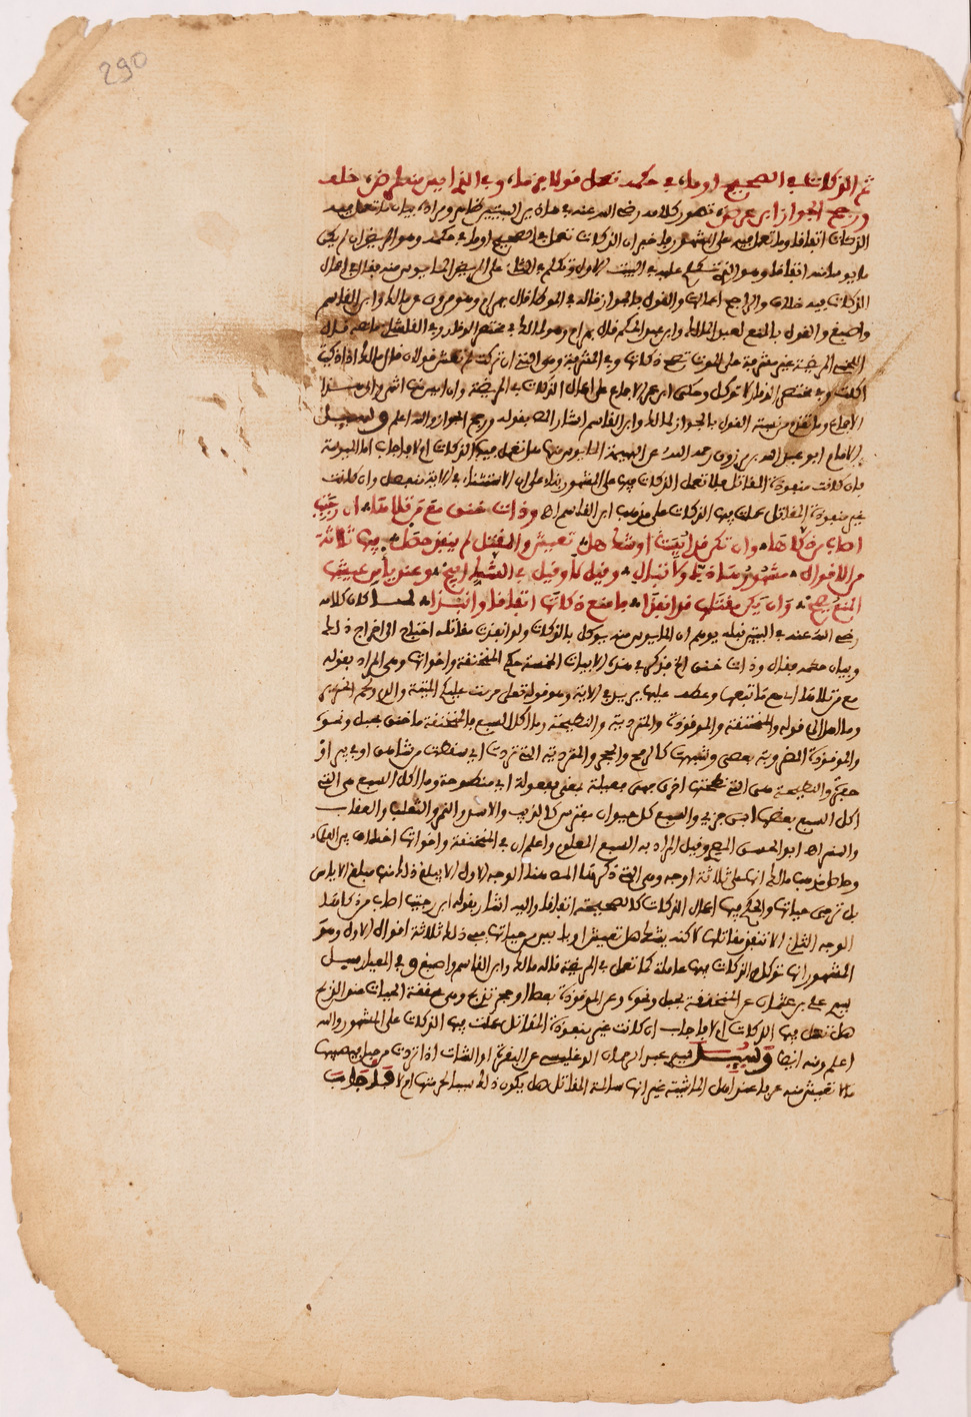 290
ثم الذكات في الصحيح او ما في حكمه تعمل فولا جزما وفي الذي ايس منه المرض خلف
ورجح الجواز ابن عرض تصور كلامه رضي الله عنه في هاذين البيتين ظاهر ومراده بيان ما تعمل فيه
الذكات اتفافا وما تعمل فيه على المشهور فاخبر ان الذكات تعمل في الصحيح او ما في حكمه وهو المريض ان لم يكن
مايوسا منه اتفافا وهو الذي تكلم عليه في البيت الاول وتكلم في الثاني على المريض المايوس منه بفال في اعمال
الذكات فيه خلاف والراجح اعمالها والفول بالجواز فاله في الموطا فال بهرام وهو مروي عن مالك وابن الفاسم
واصبغ والفول بالمنع لعبد الملك وابن عبد الحكم فال بهرام وهو لمالك في مختصر الوفار وفي الفلشاني ما نصه فال
اللخمي المريضة غير مشرفة على الموت تصح ذكاتها وفي المشرفة وهو افية ان تركت لم تعش فولان فال مالك اذا ذكيت
اكلت وفي مختصر الوفار لا توكل وحكى ابن عرفة الاجماع على اعمال الذكات في المريضة وان ايس منها انتهى
الاجماع وما تفدم من نسبة الفول بالجواز لمالك وابن الفاسم اشار اليه بفوله ورجح الجواز والله اعلم وسيل
الامام ابو عبد الله بن مرزوف رحمه الله عن البهيمة المايوس منها هل تعمل فيها الذكات ام لا فاجاب اما البهيمة
فان كانت منفوذة المفاتل فلا تعمل الذكات فيها على المشهور بناء على ان الاستثناء في الاية منفصل وان كانت
غير منفوذة المفاتل عملت فيها الذكات على مذهب ابن الفاسم اه وذات خنف مع من تلاها ان رجيت
اطلب من ذكاها وان تكن فد ايست او شك هل تعيش والمفتل لم ينفذ حصل فيها ثلاثة
من الافوال مشهورها ذكي ولا تبال وفيل لا وفيل في الشك ابح وعند ياس عيشها
المنع يصح وان يكن مفتلها فد انفذا فامنع ذكاتها اتفافا وانبذا لما كان كلامه
رضي الله عنه في البيتين فبله يوهم ان المايوس منه يوكل بالذكات ولو انفذت مفاتله احتاج الى اخراج ذلك
وبيان حكمه بفال وذات خنف الخ فذكر في هذه الابيات الخمسة حكم المنخنفة واخواتها وهي المراد بفوله
مع من تلاها اي مع ما تبعها وعطف عليها يريد في الاية وهو فوله تعلى حرمت عليكم الميتة والدم ولحم الخنزير
وما اهل الى فوله والمنخنفة والموفوذة والمتردية والنطيحة وما اكل السبع فالمنخنفة ما خنف بحبل ونحوه
والموفوذة المضروبة بعصى وشبهها كالرمح والحجر والمتردية التي تردت اي سفطت من شاهف او في بير او
حفرة والنطيحة هي التي نطحتها اخرى فهي فعيلة بمعنى مفعولة اي منطوحة وما اكل السبع هي التي
اكل السبع بعضها ابن جزي والسبع كل حيوان مفترس كالذيب والاسد والنمر والثعلب والعفاب
والنسر اه ابو الحسن الصغير وفيل المراد به السبع المعلوم واعلم ان في المنخنفة واخواتها اختلاف بين العلماء
وحاصل مذهب مالك انها على ثلاثة اوجه وهي التي ذكر هنا المصنف الوجه الاول الا يبلغ ذلك منها مبلغ الاياس
بل ترجى حياتها والحكم فيها اعمال الذكات كالصحيحة اتفافا واليه اشار بفوله ان رجيت اطلب من ذكاها
الوجه الثاني الا تنفذ مفاتلها لاكنه يشك هل تعيش او يايس من حياتها ففي ذلك ثلاثة افوال الاول وهو
المشهور انها توكل والذكات فيها عاملة كما تعمل في المريضة فاله مالك وابن الفاسم واصبغ وفي المعيار سيل
سيدي علي بن عثمان عن المنخنفة بحبل ونحوه وعن الموفوذة بعصا او حجر تذبح وهي محففة الحيات عند الذبح
هل تعمل فيها الذكات ام لا فاجاب ان كانت غير منفوذة المفاتل عملت فيها الذكات على المشهور والله
اعلم ومنه ايضا وسيل سيدي عبد الرحمان الوغليسي عن البفرة او الشات اذا تردت من جبل
لا تعيش منه عرفا عند اهل الماشية غير انها سالمة المفاتل هل يكون ذلك سببا لحرمتها ام لا فاجاب